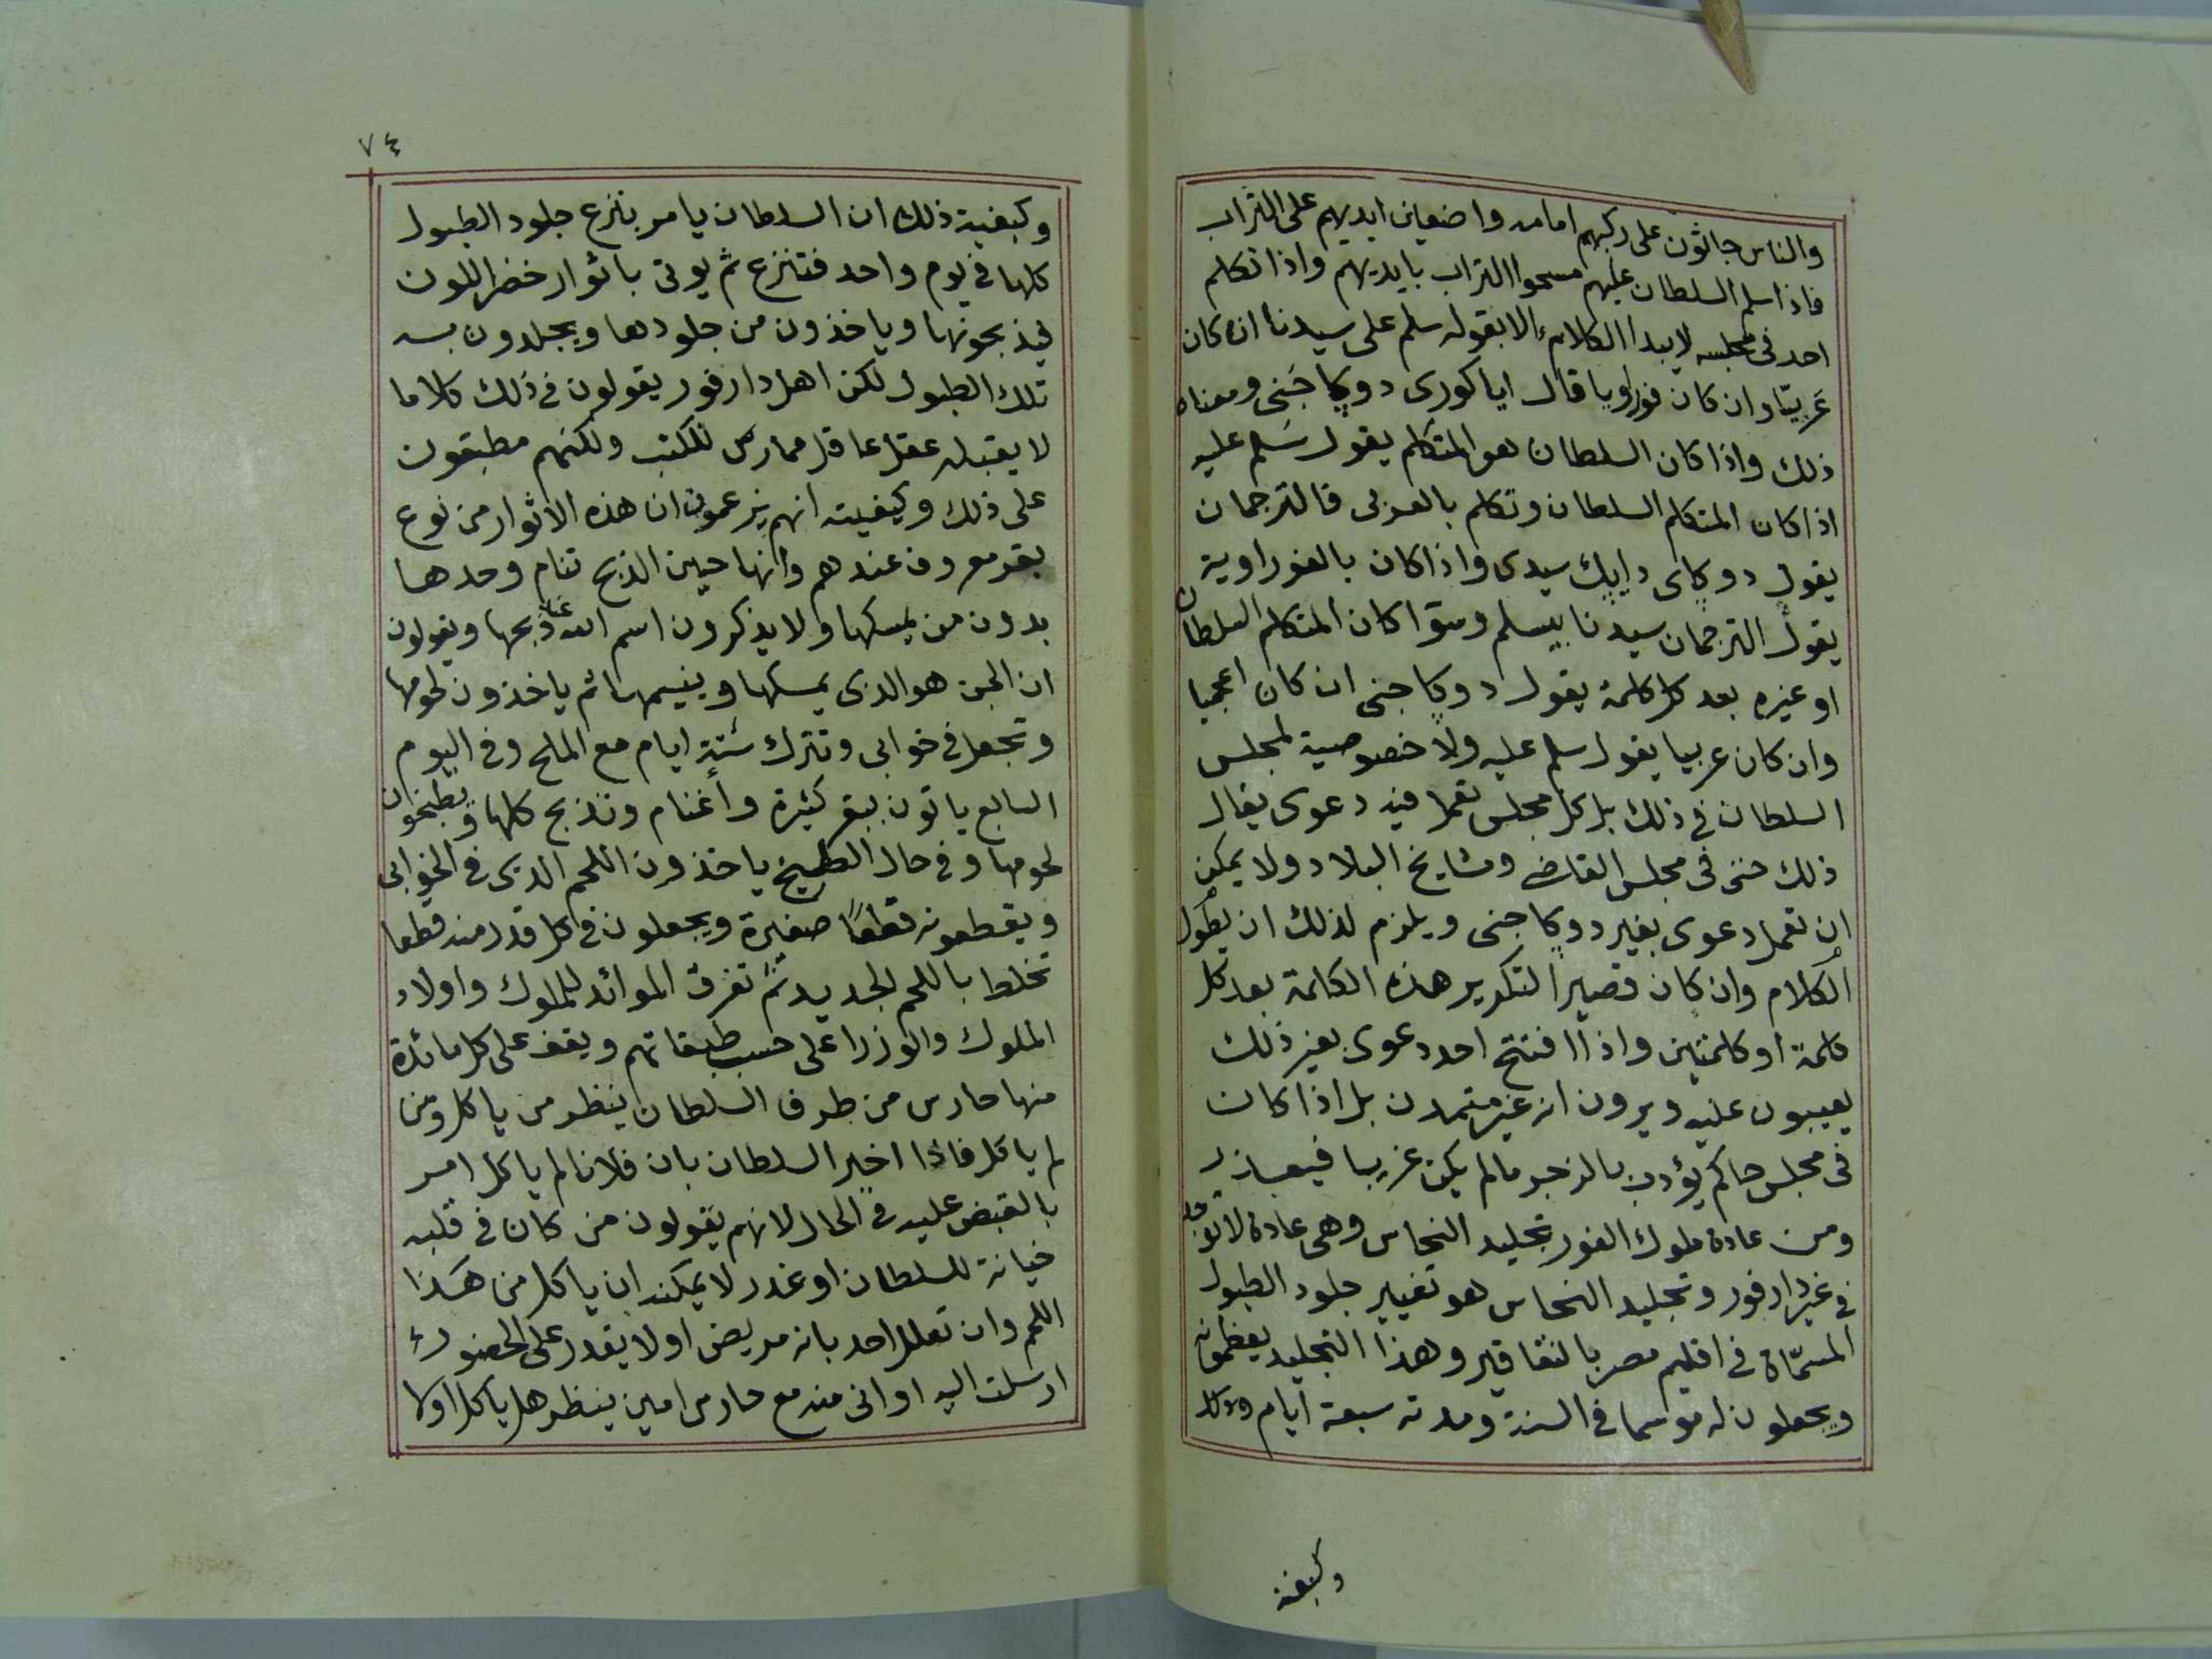 والناس جاثون على ركبهم امامه واضعين ايديهم على التراب
فاذا سلم السلطان عليهم مسحوا التراب بايديهم واذا تكلم
احد فى مجلسه لا يبدا الكلام الا بقوله سلم على سيدنا ان كان
عَربيًّا وان كان فوراويا قال ايا كورى دوݣا جَنى ومعناه
ذلك واذا كان السلطان هو المتكلم يقول سَلم عليه
اذا كان المتكلم السلطان وتكلم بالعربى فالترجمان
يقول دوݣاى دايݣ سيدى واذا كان بالفوراوية
يقول الترجمان سيدنا بيسلم وسوا كان المتكلم السلطان
او غيره بعد كل كلمة يقول دوݣا جنى ان كان اعجميا
وان كان عربيا يقول سلم عليه ولا خصوصية لمجلس
السلطان فى ذلك بل كل مجلس تعمل فيه دعوى يقال
ذلك حتى فى مجلس القاضے ومشايخ البلاد ولا يمكن
ان تعمل دعوى بغير دوݣا جنى ويلزم لذلك ان يطول
الكلام وان كان قصيرا لتكرير هذه الكلمة بعد كل
كلمة او كلمتين واذا افتتح احد دعوى بغير ذلك
يعيبون عليه ويرون انه غير متمدن بل اذا كان
فى مجلس حاكم يؤدب بالزجر مالم يكن غريبا فيعذر
ومن عادة ملوك الفور تجليد النحاس وهى عادة لا توجد
فى غير دارفور وتجليد النحاس هو تغيير جلود الطبول
المسمّاة فى اقليم مصر بالنقاقير وهذا التجليد يعظمونه
ويجعلون له موسما فى السنة ومدته سبعة ايام
وكيفية
٧٤
وكيفية ذلك ان السلطان يامر بنزع جلود الطبول
كلها فى يوم واحد فتنزع ثم يوتى باثوار خضر اللون
فيذبحونها وياخذون من جلودها ويجلدون به
تلك الطبول لكن اهل دارفور يقولون فى ذلك كلاما
لا يقبله عقل عاقل ممارس للكتب ولكنهم مطبقون
على ذلك وكيفيته انهم يزعمون ان هذه الاثوار من نوع
بقر معروف عندهم وانها حين الذبح تنام وحدها
بدون من يمسكها ولا يذكرون اسم الله على ذبحها ويقولون
ان الجن هو الذى يمسكها وينيمها ثم ياخذون لحومها
وتجعل فى خوابى وتترك ستة ايام مع الملح وفى اليوم
السابع ياتون ببقر كثيرة وأغنام وتذبح كلها ويطبخون
لحومها وفى حال الطبيخ ياخذون اللحم الذى فى الخوابى
ويقطعونه قطعًا صغيرة ويجعلون فى كل قدر منه قطعا
تخلط باللحم الجديد ثمّ تفرق الموائد للملوك واولاد
الملوك والوزرا على حسب طبقاتهم ويقف على كل مائدة
منها حارس من طرف السلطان ينظر من ياكل ومن
لم ياكل فاذا اخبر السلطان بان فلانا لم ياكل امر
بالقبض عليه فى الحال لانهم يقولون من كان فى قلبه
خيانة للسلطان او غدر لا يمكنه ان ياكل من هَذا
اللحم وان تعلل احد بانه مريض او لا يقدر على الحضور
ارسلت اليه اوانى منه مع حارس امين ينظر هل ياكل اولا